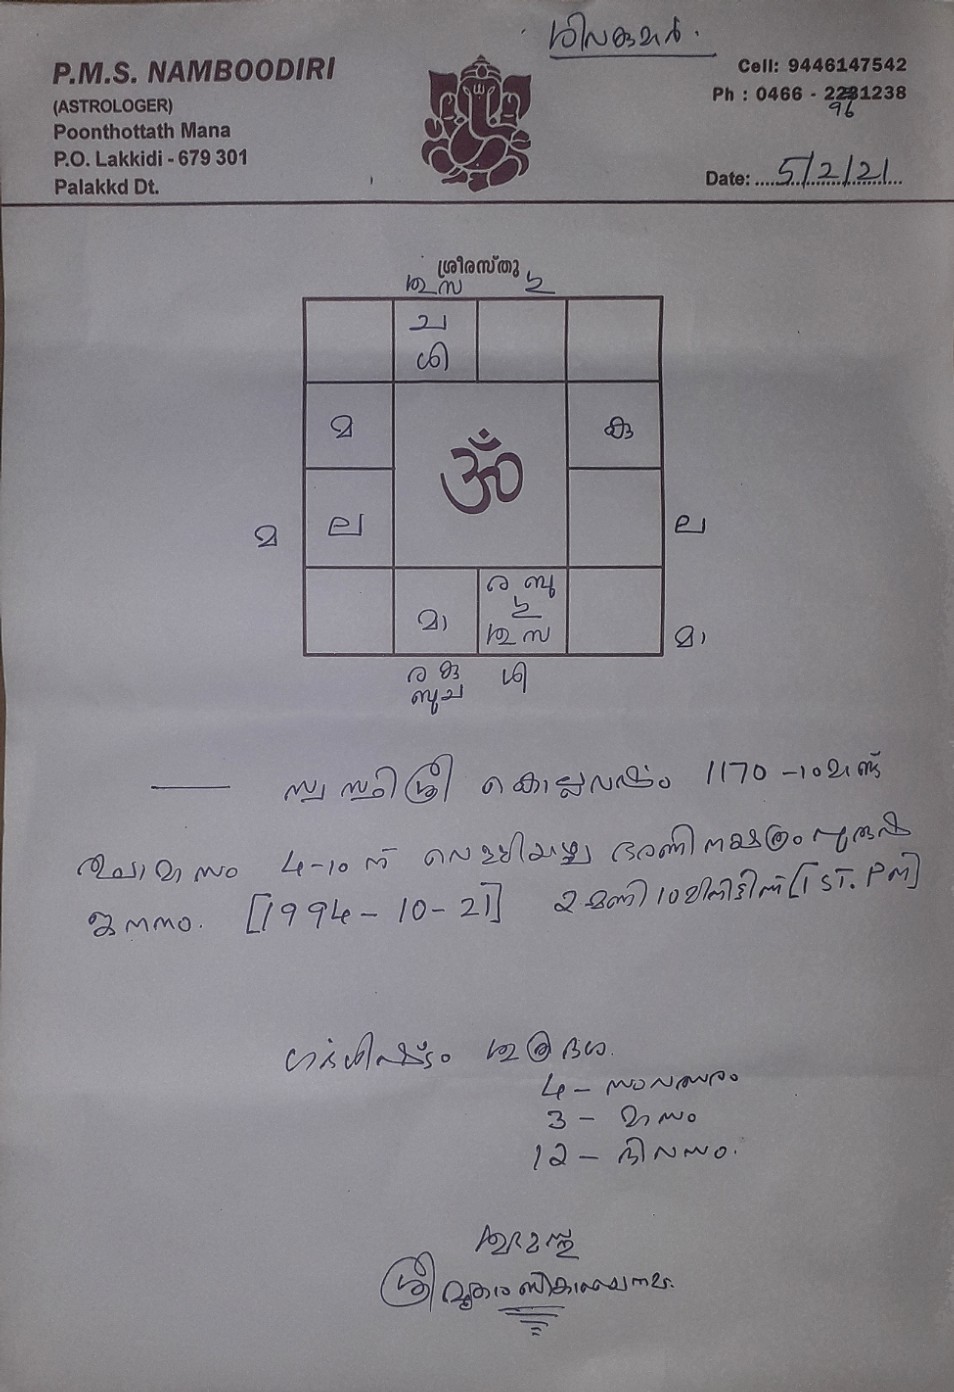 ശിവകുമാർ.
P.M.S. NAMBOODIRI
(ASTROLOGER)
Poonthottath Mana
P.O. Lakkidi - 679 301
Palakkd Dt.
Cell: 9446147542
Ph : 0466 - 2281238
96
Date: 5/2/21
ശ്രീരസ്തു
ശു സ
ച
ശി
മ
കു
മ
ല
ല
ര ബു
ശു സ
മാ
മാ
ര കു
ബു ച
ശി
സ്വസ്തിശ്രീ കൊല്ലവർഷം 1170-ാമാണ്ട്
തുലാമാസം 4-ാം ന് വെള്ളിയാഴ്ച ഭരണിനക്ഷത്രം പുരുഷ
ജനനം. [1994-10-21] 2 മണി 10 മിനിട്ടിന് [IST. PM]
ഗർഭശിഷ്ടം ശുക്രദശ.
4 - സംവത്സരം
3 - മാസം
12 - ദിവസം.
ശുഭമസ്തു
ശ്രീ